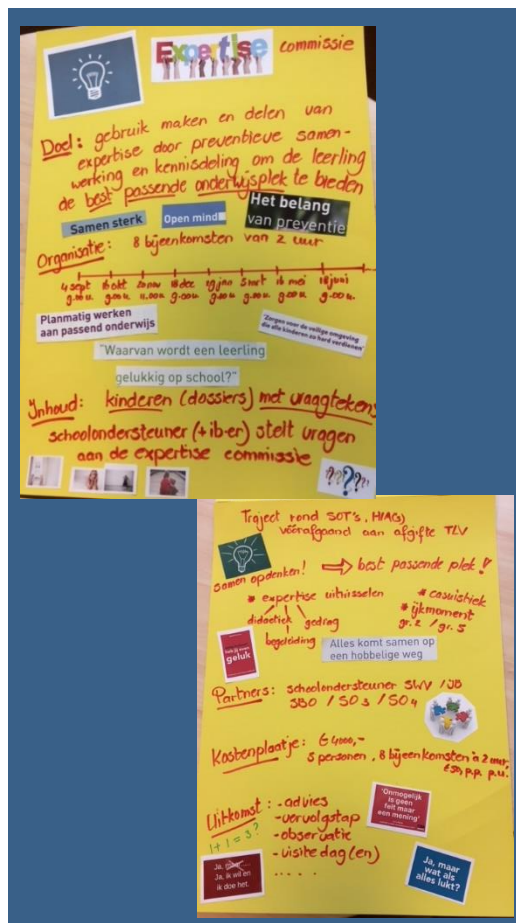 Expertise commissie
Doel: gebruik maken en delen van
expertise door preventieve samen-
werking en kennisdeling om de leerling
de best passende onderwijsplek te bieden
Samen sterk
Open mind
Het belang
van preventie
Organisatie: 8 bijeenkomsten van 2 uur
4 sept 16 okt 20 nov 18 dec 29 jan 5 mrt 16 mei 18 juni
9.00 u. 9.00 u. 11.00 u. 9.00 u. 9.00 u. 9.00 u. 9.00 u. 9.00 u.
Planmatig werken
aan passend onderwijs
'Zorgen voor de veilige omgeving
die alle kinderen zo hard verdienen'
"Waarvan wordt een leerling
gelukkig op school?"
Inhoud: kinderen (dossiers) met vraagtekens
schoolondersteuner (+ ib-er) stelt vragen
aan de expertise commissie
???
Traject rond SOT's, H(AG)
vóórafgaand aan afgifte TLV
samen opdenken! ⇒ best passende plek!
* expertise uitwisselen
* casuistiek
didactiek gedrag
* ijkmoment
gr. 2 / gr. 5
begeleiding
geluk
Alles komt samen op
een hobbelige weg
Partners: schoolondersteuner SWV / IB
SBO / SO3 / SO4
Kostenplaatje: € 4000,-
5 personen, 8 bijeenkomsten à 2 uur,
€50,- p.p. p.u.
Uitkomst: - advies
- vervolgstap
- observatie
- visite dag(en)
. . . .
1 + 1 = 3?
'Onmogelijk
is geen
feit maar
een mening'
Ja,
Ja, ik wil en
ik doe het.
Ja, maar
wat als
alles lukt?